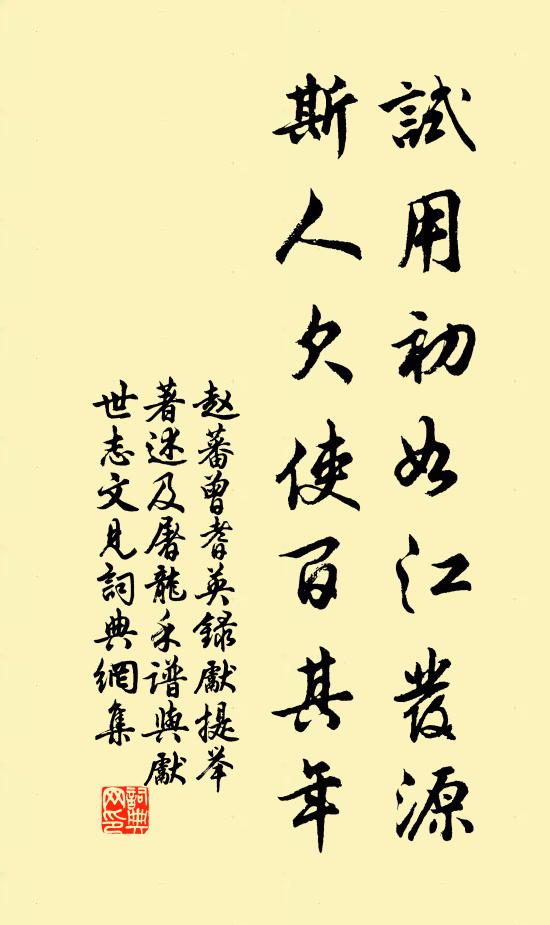 試用初如江發源
斯人欠使百其年
赵蕃曾耆英録獻提举
著述及屠龍禾谱與獻
世志文見詞典網集
詞典网印